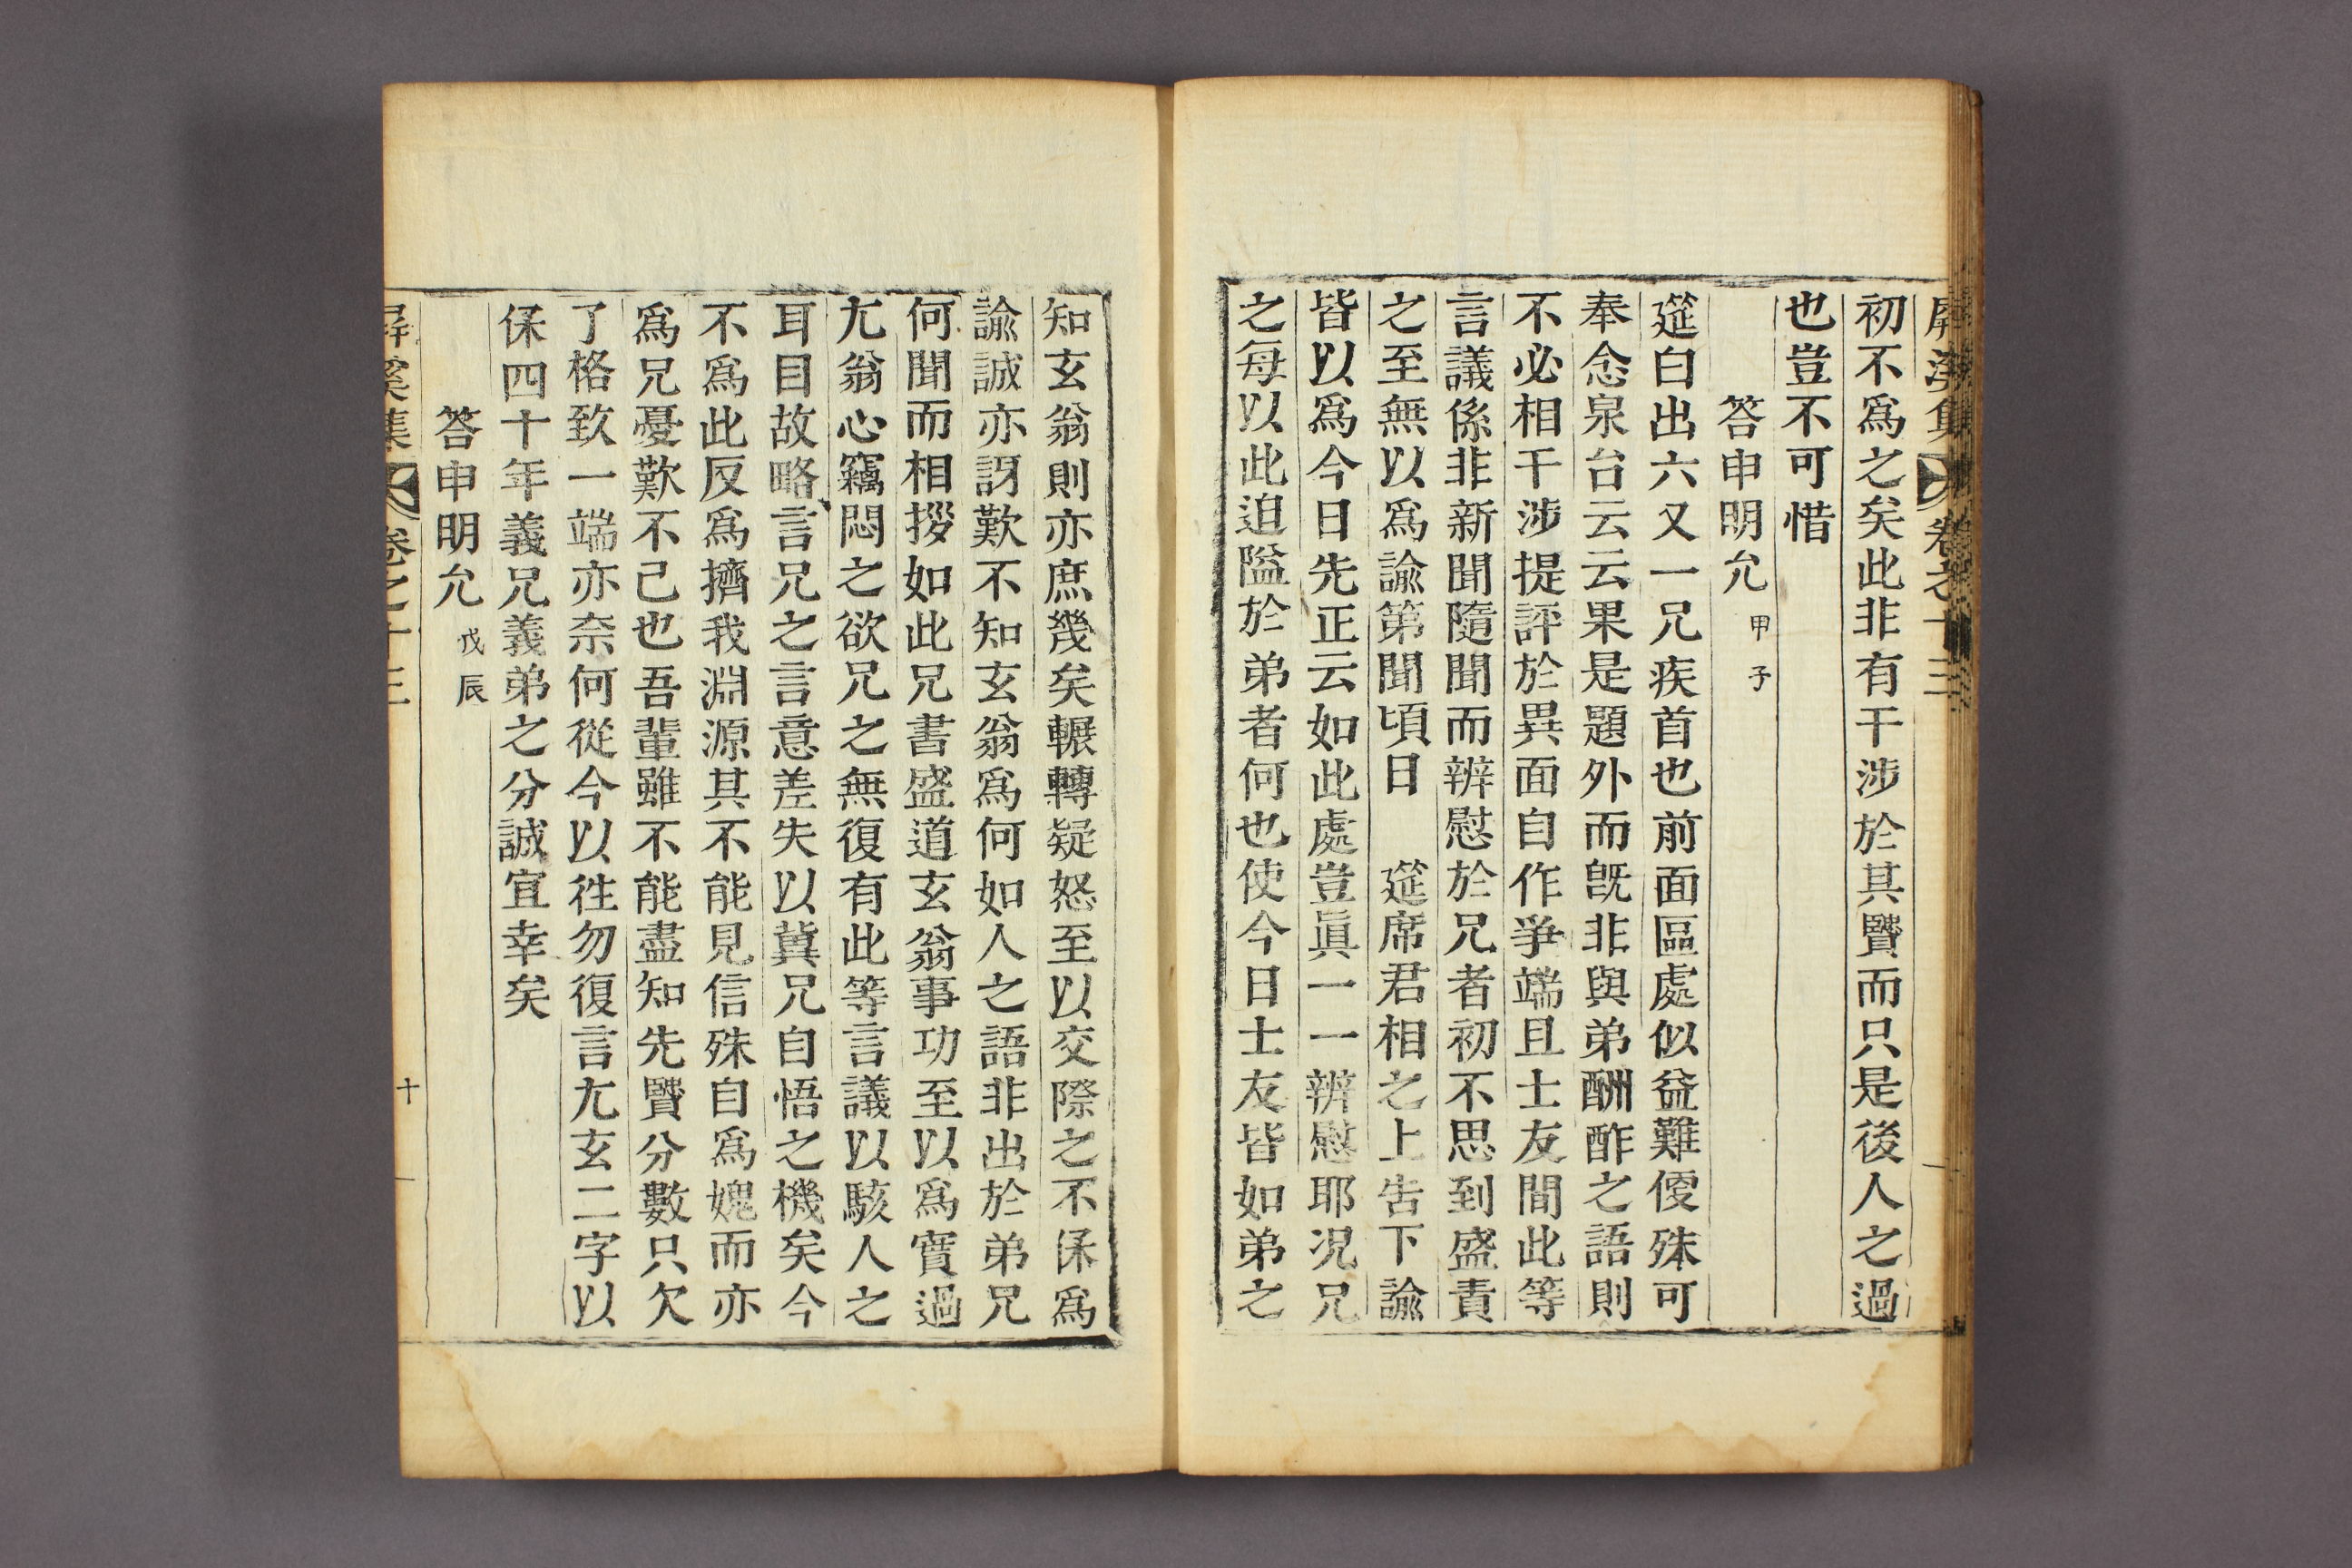 屏溪集 卷之十三
初不爲之矣此非有干涉於其贒而只是後人之過
也豈不可惜
答申明允 甲子
筵白出六又一兄疾首也前面區處似益難便殊可
奉念泉台云云果是題外而旣非與弟酬酢之語則
不必相干涉提評於異面自作爭端且士友間此等
言議係非新聞隨聞而辨慰於兄者初不思到盛責
之至無以爲諭第聞頃日 筵席君相之上吿下諭
皆以爲今日先正云如此處豈眞一一辨慰耶况兄
之每以此迫隘於弟者何也使今日士友皆如弟之
知玄翁則亦庶幾矣輾轉疑怒至以交際之不保爲
諭誠亦訝歎不知玄翁爲何如人之語非出於弟兄
何聞而相拶如此兄書盛道玄翁事功至以爲實過
尤翁心竊悶之欲兄之無復有此等言議以駭人之
耳目故略言兄之言意差失以冀兄自悟之機矣今
不爲此反爲擠我淵源其不能見信殊自爲媿而亦
爲兄憂歎不已也吾輩雖不能盡知先贒分數只欠
了格致一端亦奈何從今以徃勿復言尤玄二字以
保四十年義兄義弟之分誠宜幸矣
答申明允 戊辰
屏溪集 卷之十三 十